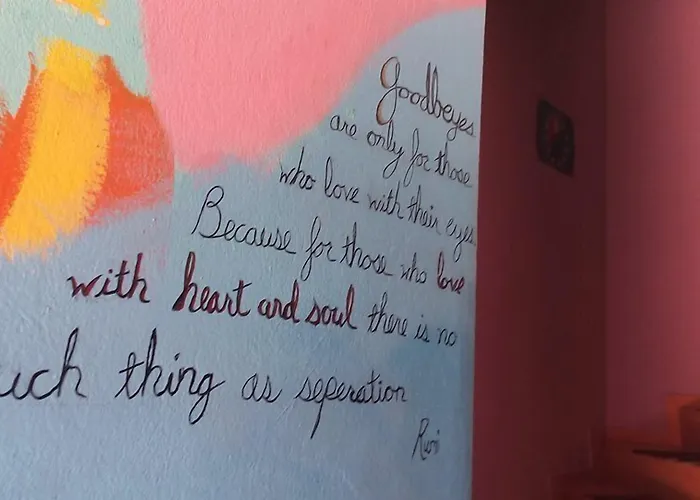 Goodbeyes
are only for those
who love with their eyes
Because for those who love
with heart and soul there is no
uch thing as seperation
Rumi